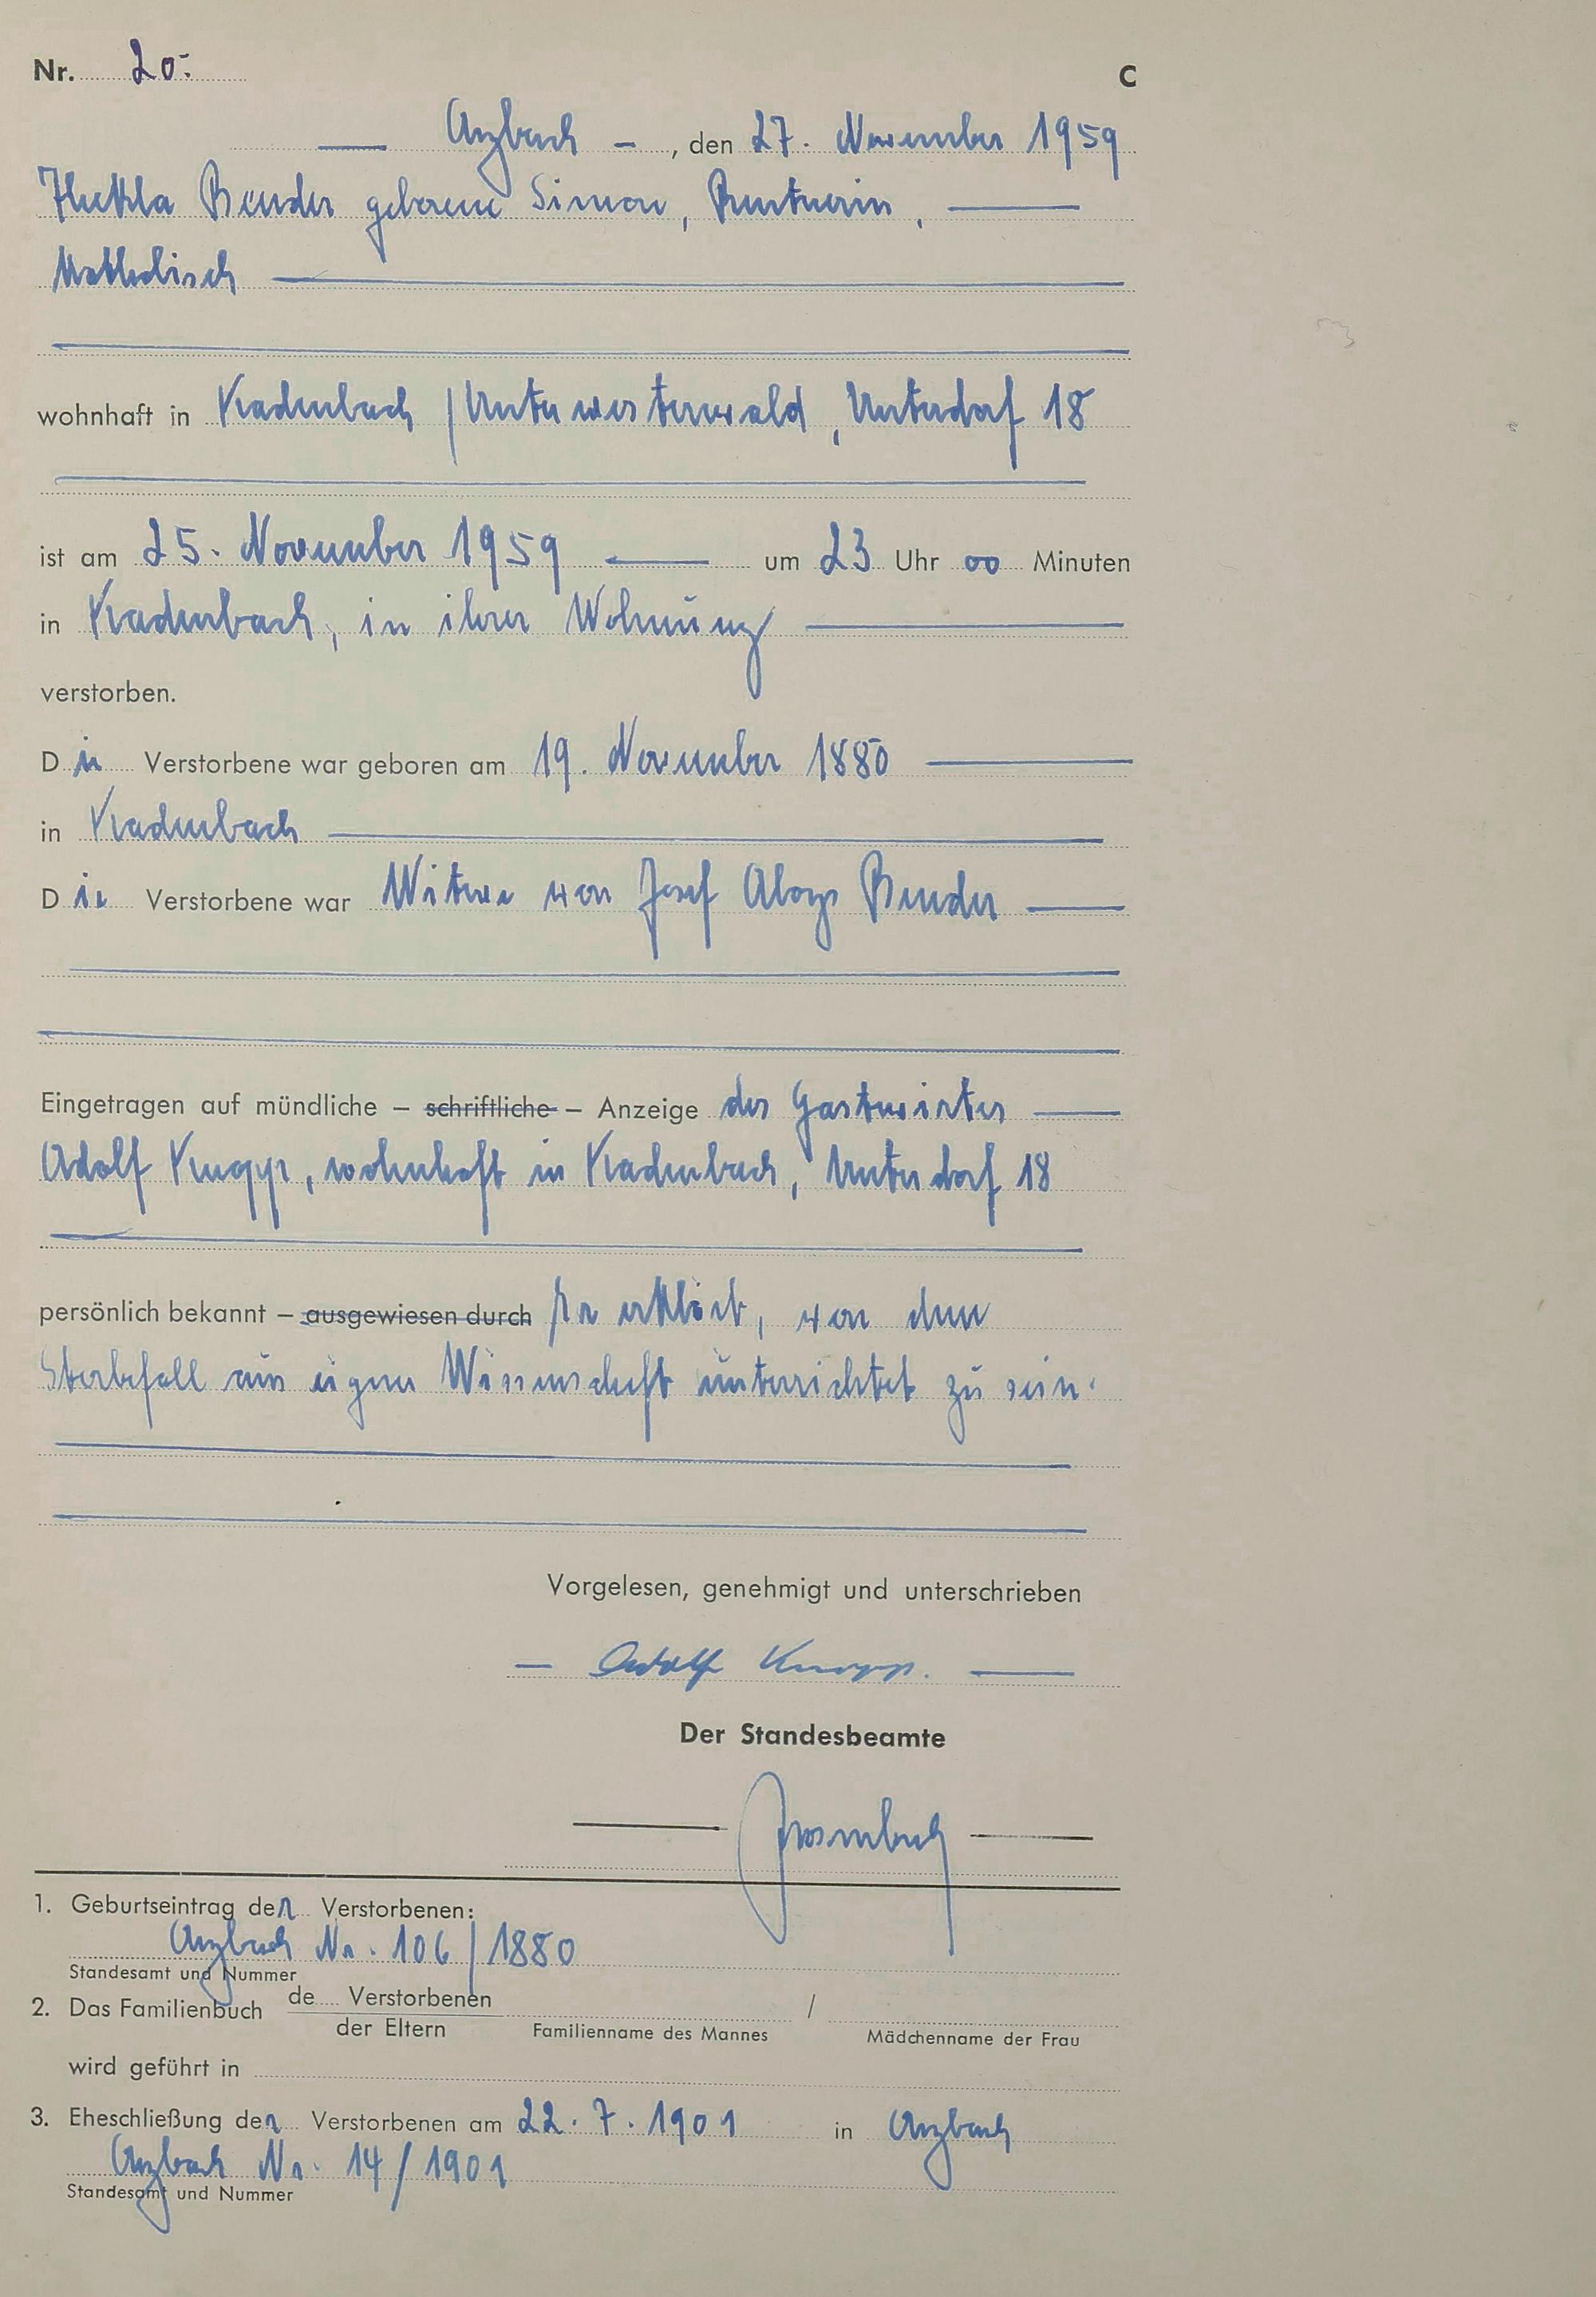 Nr. 20. C
— Arzbach — , den 27. November 1959
Thekla Bender geborene Simon, Rentnerin, —
katholisch —
wohnhaft in Kadenbach / Unterwesterwald, Unterdorf 18
ist am 25. November 1959 — um 23 Uhr 00 Minuten
in Kadenbach, in ihrer Wohnung —
verstorben.
Die Verstorbene war geboren am 19. November 1880 —
in Kadenbach —
Die Verstorbene war Witwe von Josef Aloys Bender —
Eingetragen auf mündliche – schriftliche – Anzeige des Gastwirtes —
Adolf Knopp, wohnhaft in Kadenbach, Unterdorf 18
persönlich bekannt – ausgewiesen durch Er erklärt, von dem
Sterbefall aus eigner Wissenschaft unterrichtet zu sein.
Vorgelesen, genehmigt und unterschrieben
— Adolf Knopp. —
Der Standesbeamte
1. Geburtseintrag der Verstorbenen:
Arzbach Nr. 106/1880
Standesamt und Nummer
2. Das Familienbuch de Verstorbenen /
der Eltern Familienname des Mannes Mädchenname der Frau
wird geführt in
3. Eheschließung der Verstorbenen am 22. 7. 1901 in Arzbach
Arzbach Nr. 14/1901
Standesamt und Nummer